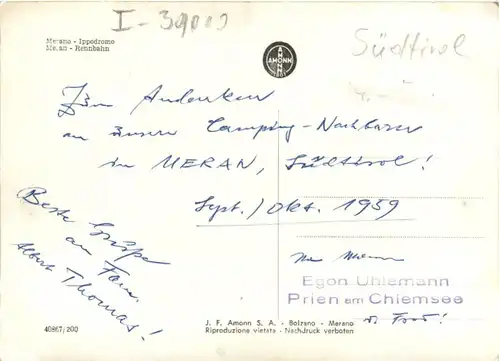 I-39009
Südtirol
Merano - Ippodromo
Meran - Rennbahn
AMONN
Zum Andenken
an unsere Camping-Nachbarn
in MERAN, Südtirol!
Sept./Okt. 1959
Beste Grüße
an Fam.
Albert Thomas!
Egon Uhlemann
Prien am Chiemsee
40867/200
J. F. Amonn S. A. - Bolzano - Merano
Riproduzione vietata - Nachdruck verboten